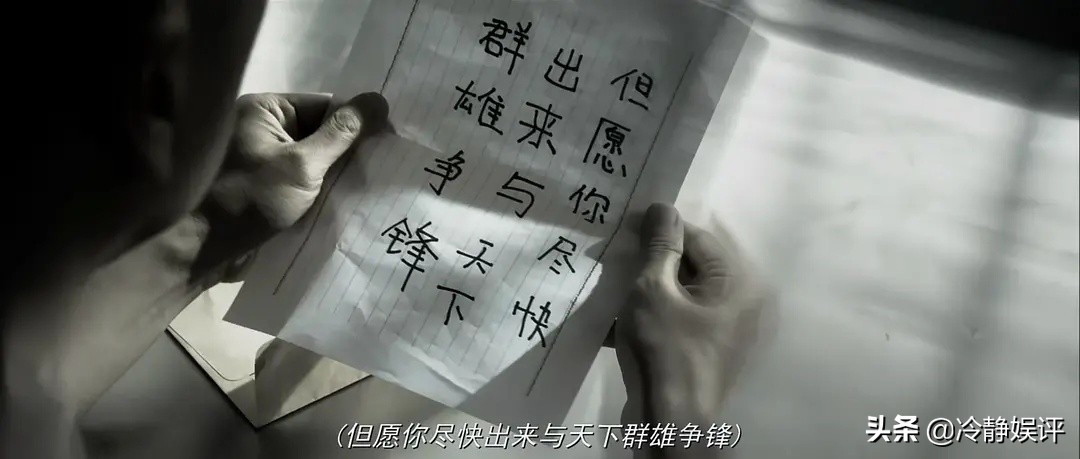 但愿你尽快
出来与天下
群雄争锋
(但愿你尽快出来与天下群雄争锋)
头条 @冷静娱评